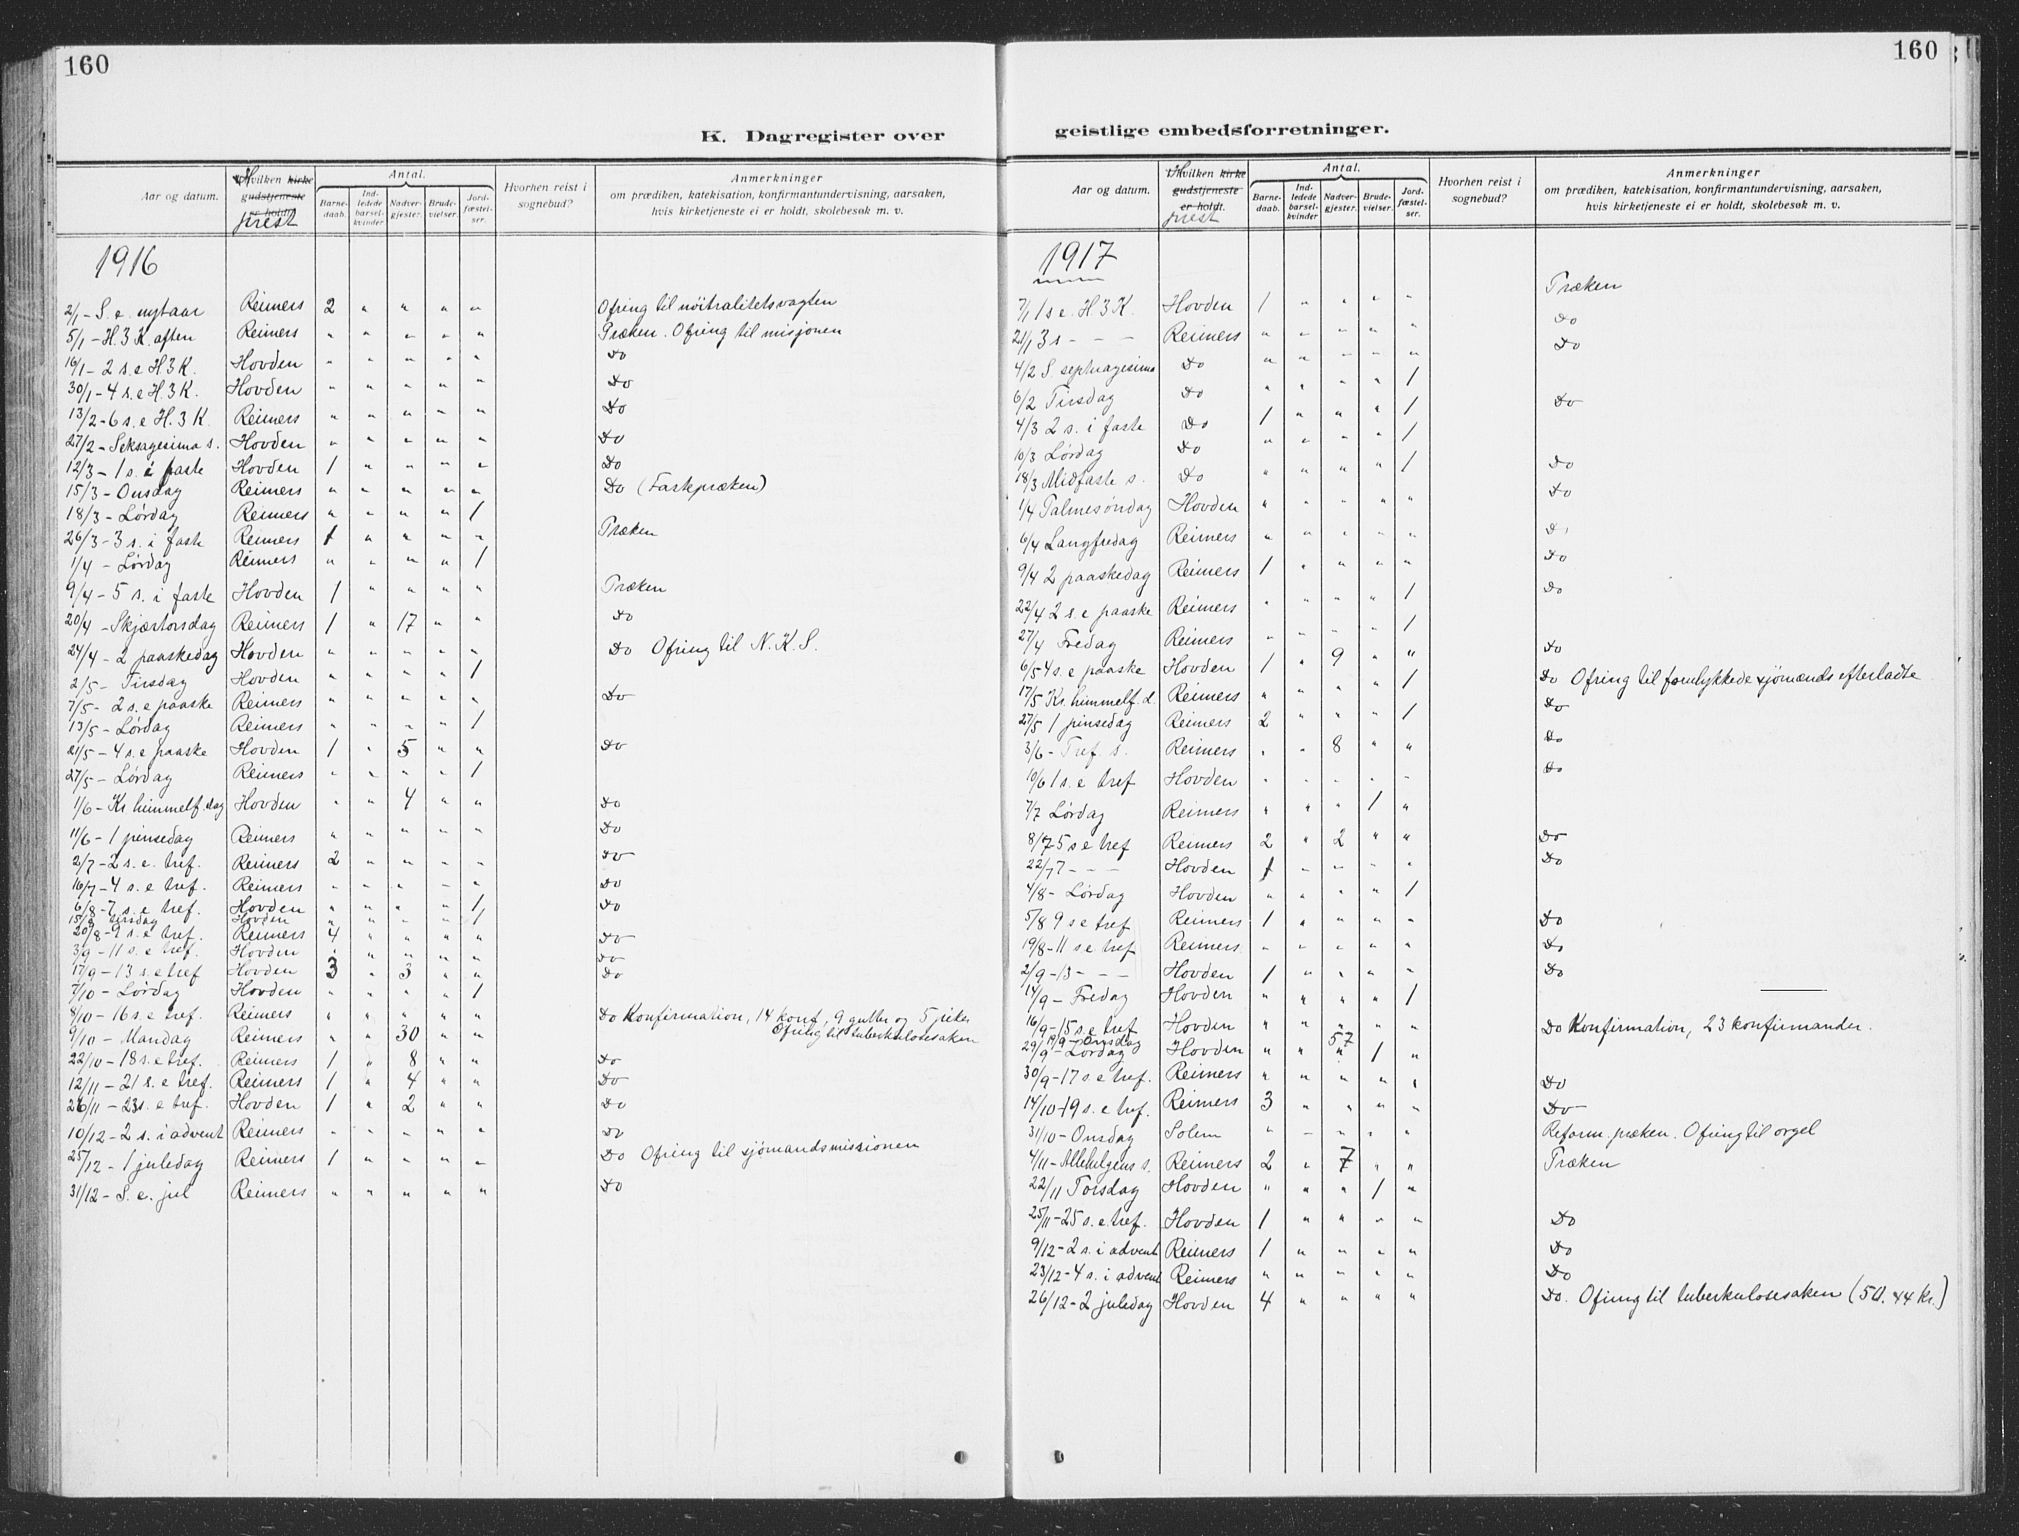 160
K. Dagregister over
Aar og datum.
Hvilken kirke gudstjeneste er holdt. prest
Antal.
Barnedaab.
Indledede barselkvinder
Nadvergjester.
Brudevielser.
Jordfæstelser.
Hvorhen reist i sognebud?
Anmerkninger
om prædiken, katekisation, konfirmantundervisning, aarsaken,
hvis kirketjeneste ei er holdt, skolebesøk m. v.
1916
2/1 - S. e. nytaar Reimers 2 " " " " Ofring til nöitralitetsvagten
5/1 - H. 3 K. aften Reimers " " " " " Præken. Ofring til misjonen
16/1 - 2 s. e H 3 K. Hovden " " " " " Do
30/1 - 4 s. e H. 3 K. Hovden " " " " " Do
13/2 - 6 s. e H. 3 K Reimers " " " " " Do
27/2 - Seksagesima s. Hovden " " " " " Do
12/3 - 1 s. i faste Hovden 1 " " " " Do
15/3 - Onsdag Reimers " " " " " Do (Fastepræken)
18/3 - Lørdag Reimers " " " " 1
26/3 - 3 s. i faste Reimers 1 " " " " Præken
1/4 - Lørdag Reimers " " " " 1
9/4 - 5 s. i faste Hovden 1 " " " " Præken
20/4 - Skjærtorsdag Reimers 1 " 17 " " Do
24/4 - 2 paaskedag Hovden " " " " " Do Ofring til N. K. S.
2/5 - Tirsdag Hovden " " " " 1
7/5 - 2 s. e paaske Reimers " " " " " Do
13/5 - Lørdag Reimers " " " " 1
21/5 - 4 s. e paaske Hovden 1 " 5 " " Do
27/5 - Lørdag Reimers " " " " 1
1/6 - Kr. himmelf. dag Hovden " " 4 " " Do
11/6 - 1 pinsedag Reimers " " " " " Do
2/7 - 2 s. e. tref. Reimers 2 " " " " Do
16/7 - 4 s. e tref. Reimers " " " " " Do
6/8 - 7 s. e tref. Hovden " " " " 1 Do
15/8 tirsdag Hovden " " " " 1
20/8 - 9 s. e tref. Reimers 4 " " " " Do
3/9 - 11 s. e tref. Hovden " " " " " Do
17/9 - 13 s. e tref Hovden 3 " 3 " " Do
7/10 - Lørdag Hovden " " " " 1
8/10 - 16 s. e tref. Reimers " " " " " Do Konfirmation, 14 konf, 9 gutter og 5 piker
9/10 - Mandag Reimers " " 30 " " Ofring til tuberkulosesaken
22/10 - 18 s. e tref. Reimers 1 " 8 " " Do
12/11 - 21 s. e tref. Reimers 1 " 4 " " Do
26/11 - 23 s. e tref. Hovden 1 " 2 " " Do
10/12 - 2 s. i advent Reimers " " " " " Do
25/12 - 1 juledag Reimers 1 " " " " Do Ofring til sjømandsmissionen
31/12 - S. e. jul Reimers " " " " " Do
160
geistlige embedsforretninger.
Aar og datum.
Hvilken kirke gudstjeneste er holdt. prest
Antal.
Barnedaab.
Indledede barselkvinder
Nadvergjester.
Brudevielser.
Jordfæstelser.
Hvorhen reist i sognebud?
Anmerkninger
om prædiken, katekisation, konfirmantundervisning, aarsaken,
hvis kirketjeneste ei er holdt, skolebesøk m. v.
1917
7/1 1 s e. H. 3 K. Hovden 1 " " " " Præken
21/1 3 s - - - Reimers " " " " " Do
4/2 S. septuagesima Do " " " " " Do
6/2 Tirsdag Do " " " " 1
4/3 2 s. i faste Do 1 " " " 1 Do
10/3 Lørdag Do " " " " 1
18/3 Midfaste s. Do " " " " 1 Do
1/4 Palmesøndag Hovden " " " " " Do
6/4 Langfredag Reimers " " " " " Do
9/4 2 paaskedag Reimers 1 " " " " Do
22/4 2 s. e paaske Reimers " " " " 1 Do
27/4 Fredag Reimers " " " " 1
6/5 4 s. e paaske Hovden 1 " 9 " " Do
17/5 Kr. himmelf. d. Reimers " " " " 1 Do Ofring til forulykkede sjømænds efterladte
27/5 1 pinsedag Reimers 2 " " " 1 Do
3/6 - Tref. s. Reimers " " 8 " " Do
10/6 1 s. e tref Hovden " " " " " Do
7/7 Lørdag Reimers " " " 1 "
8/7 - 5 s e tref Reimers 2 " 2 " " Do
22/7 7 - - - Hovden 1 " " " " Do
4/8 - Lørdag Hovden " " " " 1
5/8 9 s e tref Reimers 1 " " " " Do
19/8 - 11 s e tref Reimers " " " " " Do
2/9 - 13 - - - Hovden 1 " " " " Do
14/9 - Fredag Hovden " " " " 1
16/9 - 15 s. e tref Hovden " " " " " Do Konfirmation, 23 konfirmander.
19/9 - Onsdag 57
29/9 - Lørdag Hovden " " " 1 "
30/9 - 17 s. e tref. Reimers " " " " " Do
14/10 - 19 s. e tref. Reimers 3 " " " " Do
31/10 - Onsdag Solem " " " " " Reform. præken. Ofring til orgel
4/11 - Allehelgens s. Reimers 2 " 7 " " Præken
22/11 Torsdag Hovden " " " 1 "
25/11 - 25 s. e. tref. Hovden 1 " " " " Do
9/12 - 2 s. i advent Reimers 1 " " " " Do
23/12 - 4 s. i advent Reimers " " " " " Do
26/12 - 2 juledag Hovden 4 " " " " Do. Ofring til tuberkulosesaken (50.44 kr.)